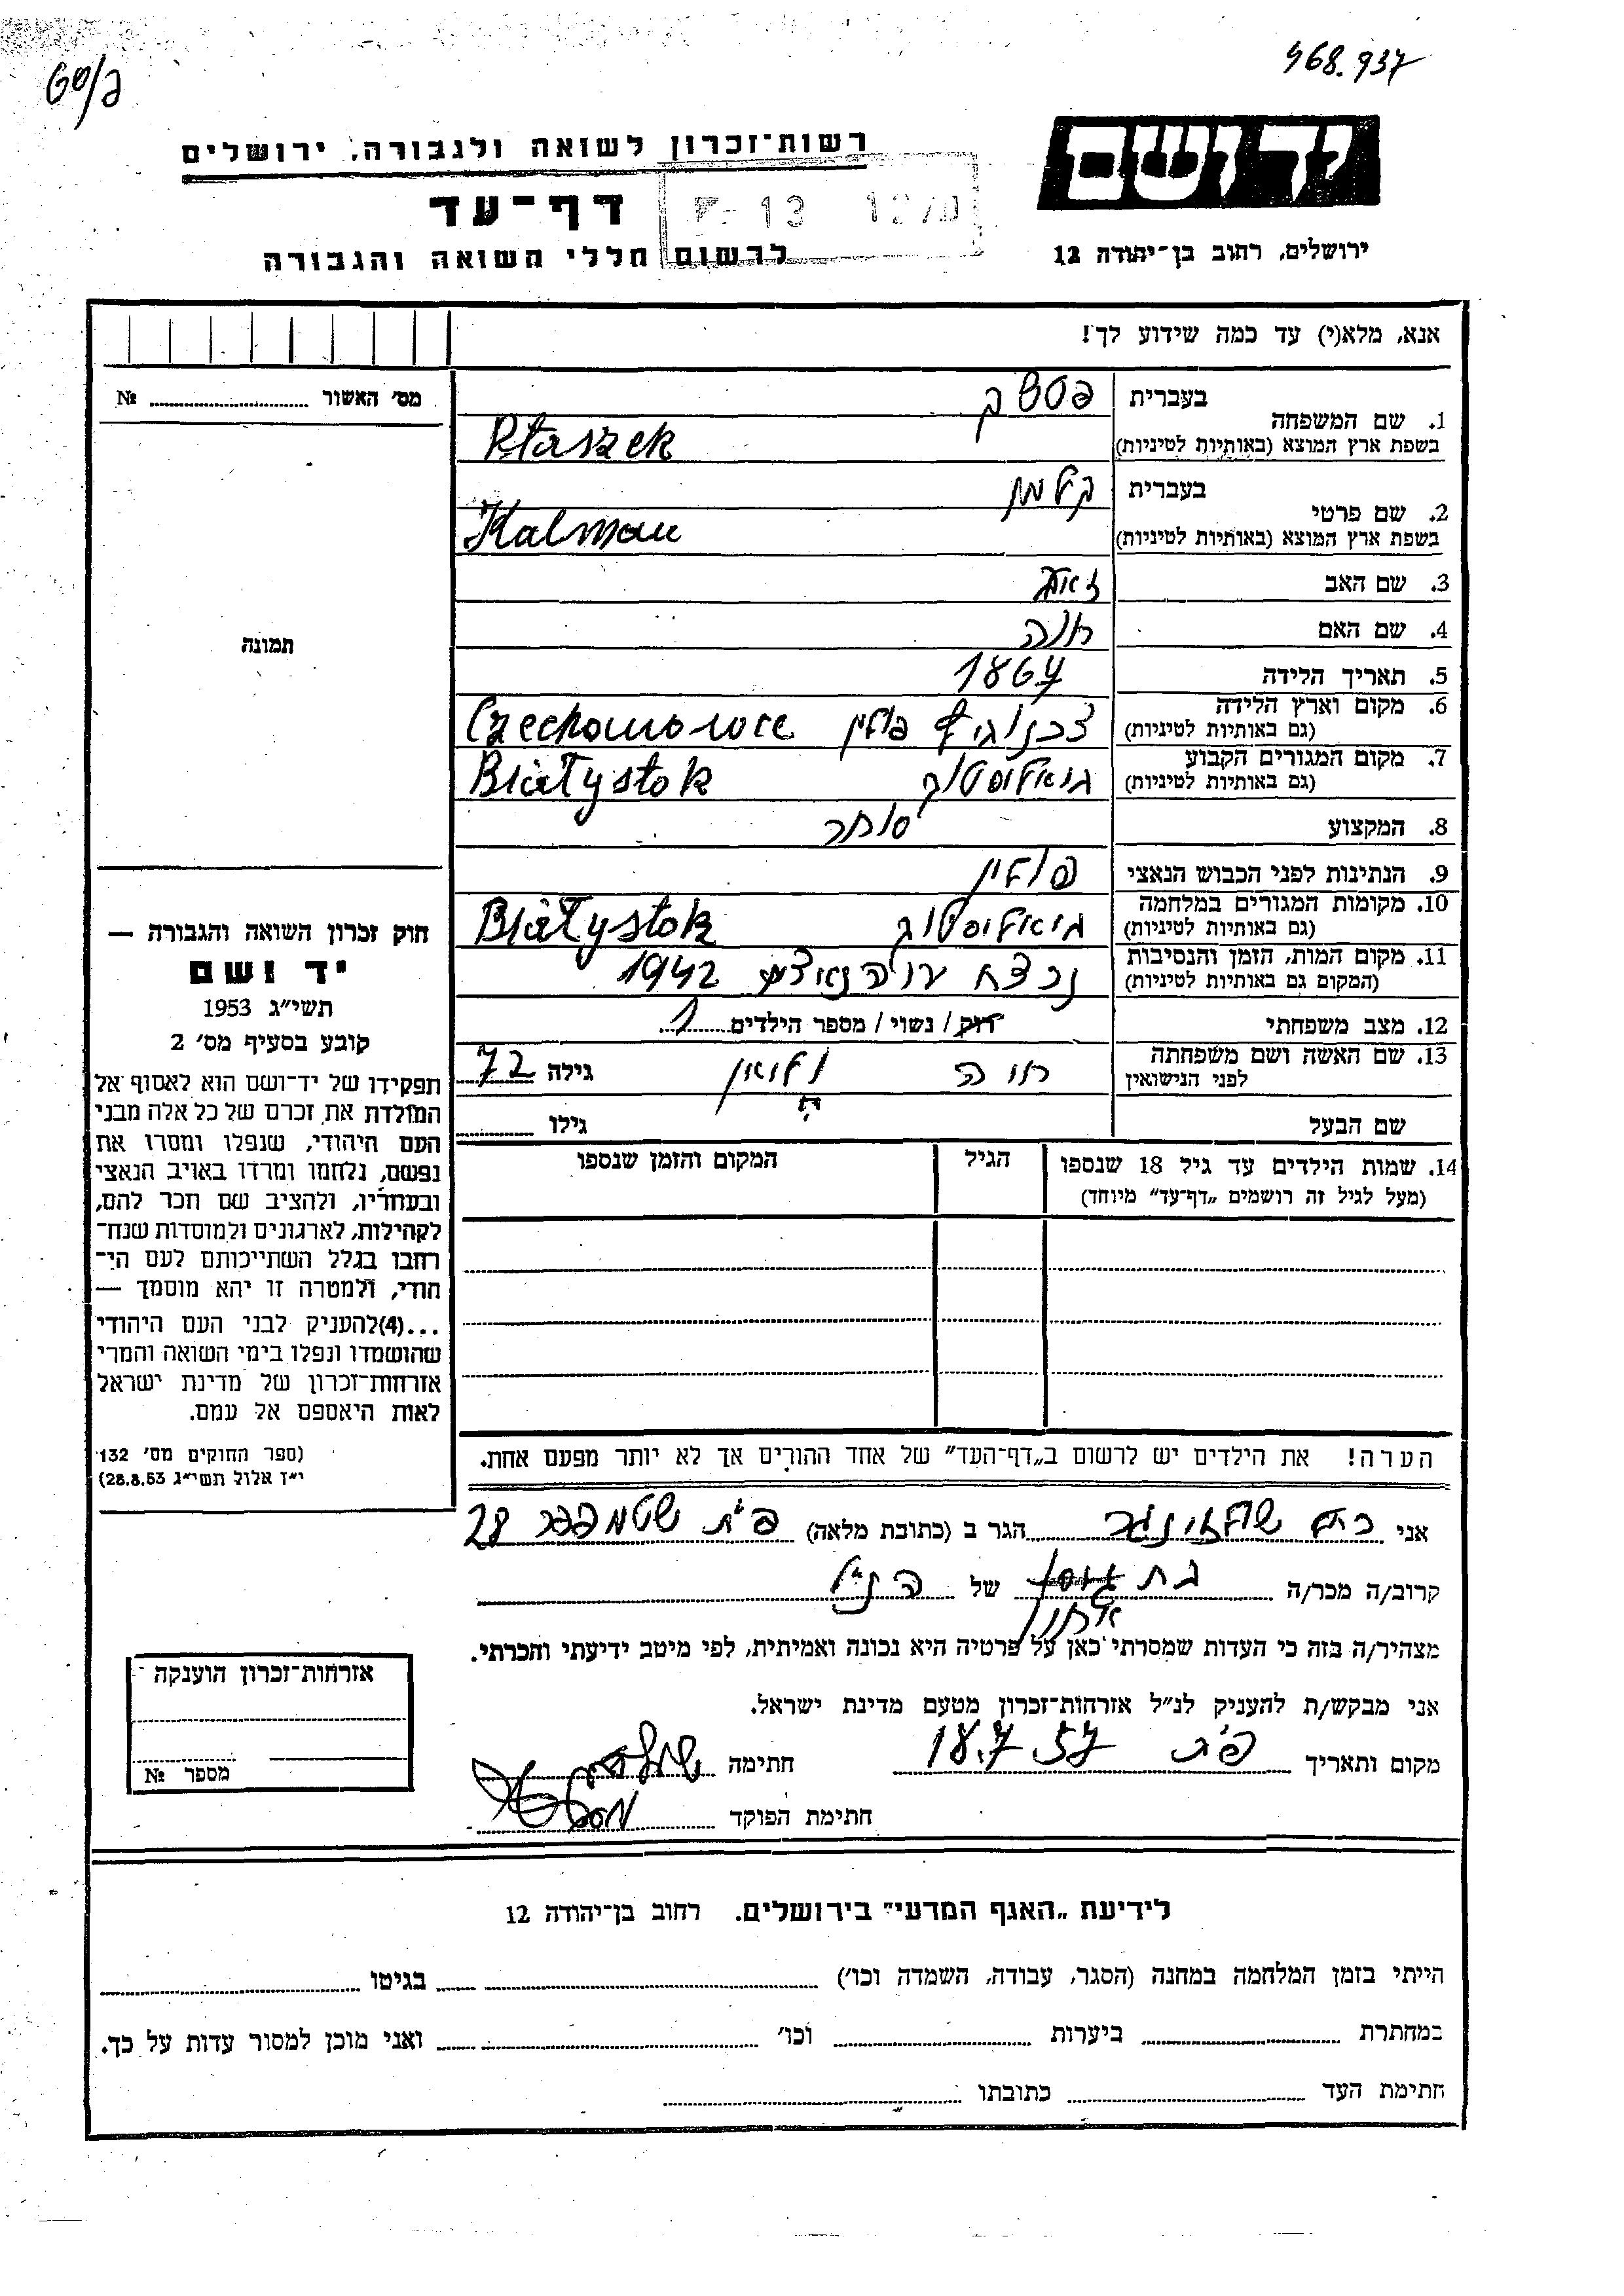 468.937
60/פ
יד ושם
רשות־זכרון לשואה ולגבורה, ירושלים
דף־עד
לרשום חללי השואה והגבורה
ירושלים, רחוב בן־יהודה 12
אנא, מלא(י) עד כמה שידוע לך!
מס׳ האשור № 
1. שם המשפחה בעברית פטשק
בשפת ארץ המוצא (באותיות לטיניות) Ptaszek
2. שם פרטי בעברית קלמן
בשפת ארץ המוצא (באותיות לטיניות) Kalman
3. שם האב זאב
4. שם האם חנה
5. תאריך הלידה 1867
6. מקום וארץ הלידה פולין
(גם באותיות לטיניות)
7. מקום המגורים הקבוע ביאליסטוק Białystok
(גם באותיות לטיניות)
8. המקצוע סוחר
9. הנתינות לפני הכבוש הנאצי פולין
10. מקומות המגורים במלחמה ביאליסטוק Białystok
(גם באותיות לטיניות)
11. מקום המות, הזמן והנסיבות נרצח 1942
(המקום גם באותיות לטיניות)
12. מצב משפחתי רוק / נשוי / מספר הילדים 1
13. שם האשה ושם משפחתה חוה גילה 72
לפני הנישואין
שם הבעל גילו
14. שמות הילדים עד גיל 18 שנספו הגיל המקום והזמן שנספו
(מעל לגיל זה רושמים „דף־עד” מיוחד)
תמונה
חוק זכרון השואה והגבורה —
יד ושם
תשי״ג 1953
קובע בסעיף מס׳ 2
תפקידו של יד־ושם הוא לאסוף אל
המולדת את זכרם של כל אלה מבני
העם היהודי, שנפלו ומסרו את
נפשם, נלחמו ומרדו באויב הנאצי
ובעוזריו, ולהציב שם וזכר להם,
לקהילות, לארגונים ולמוסדות שנח־
רבו בגלל השתייכותם לעם הי־
הודי, ולמטרה זו יהא מוסמך —
...(4)להעניק לבני העם היהודי
שהושמדו ונפלו בימי השואה והמרי
אזרחות־זכרון של מדינת ישראל
לאות היאספם אל עמם.
(ספר החוקים מס׳ 132
י״ז אלול תשי״ג 28.8.53)
הערה! את הילדים יש לרשום ב„דף־העד” של אחד ההורים אך לא יותר מפעם אחת.
אני הגר ב (כתובת מלאה) פ״ת שטמפפר 28
קרוב/ה מכר/ה בת אחותו של הנ״ל
מצהיר/ה בזה כי העדות שמסרתי כאן על פרטיה היא נכונה ואמיתית, לפי מיטב ידיעתי והכרתי.
אני מבקש/ת להעניק לנ״ל אזרחות־זכרון מטעם מדינת ישראל.
מקום ותאריך פ״ת 18.7.57 חתימה
חתימת הפוקד
אזרחות־זכרון הוענקה
מספר №
לידיעת „האגף המדעי” בירושלים. רחוב בן־יהודה 12
הייתי בזמן המלחמה במחנה (הסגר, עבודה, השמדה וכו׳) בגיטו
במחתרת ביערות וכו׳ ואני מוכן למסור עדות על כך.
חתימת העד כתובתו